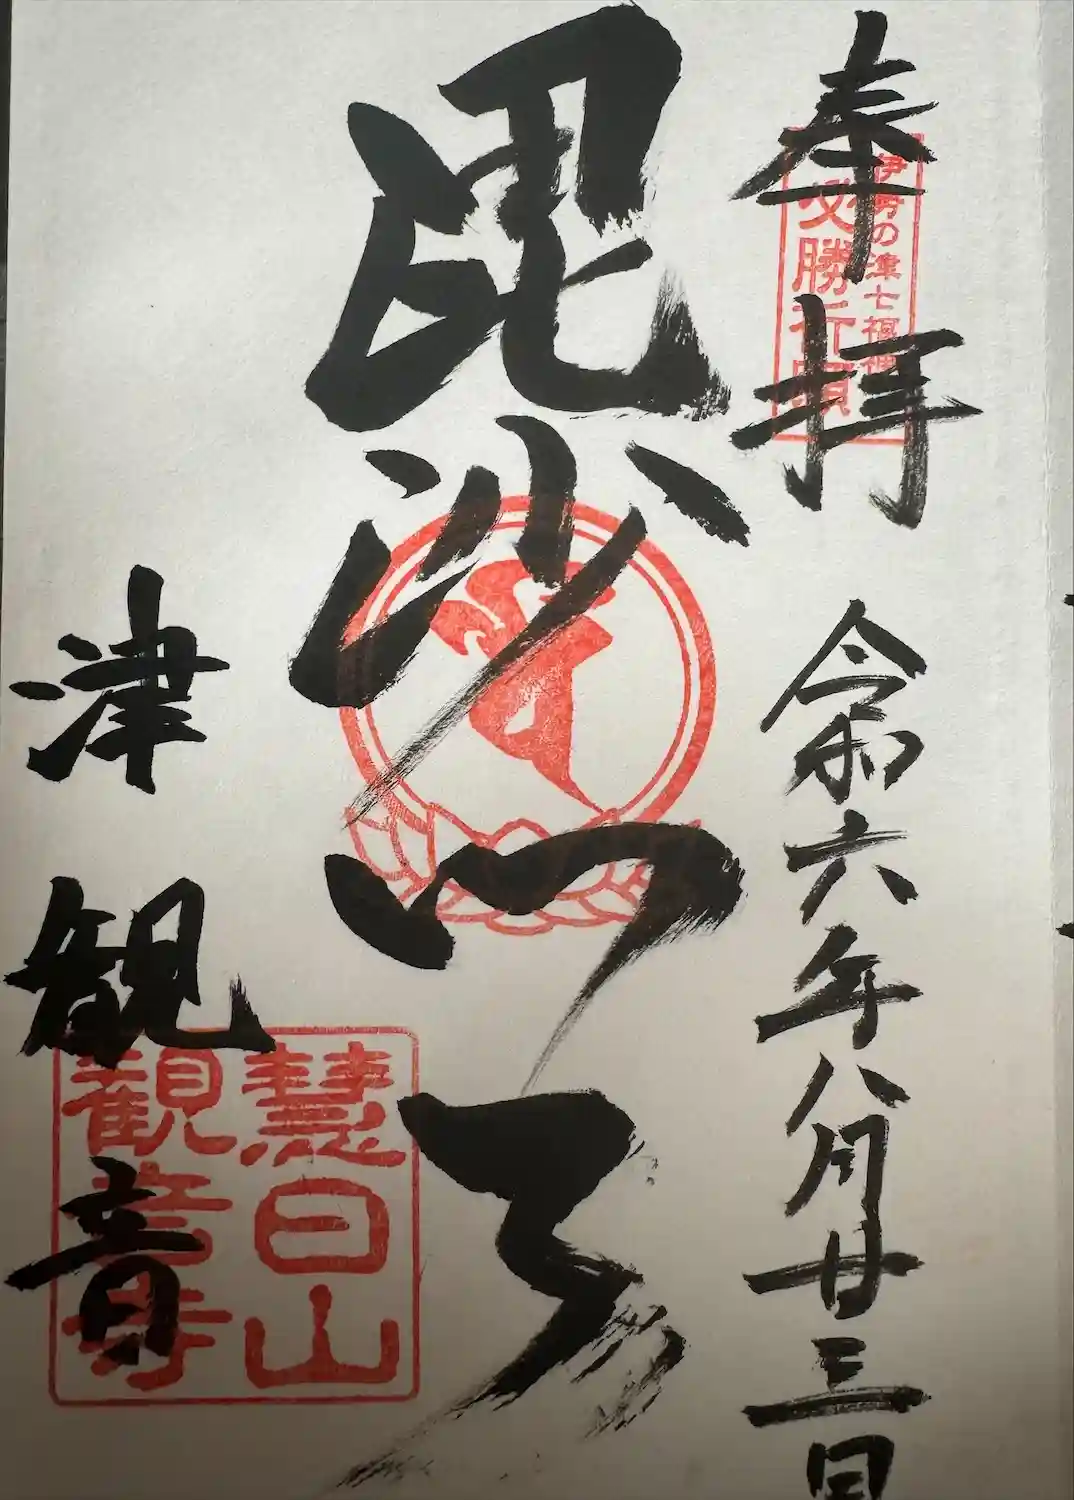 奉拝
令和六年八月廿三日
伊勢の津七福神
必勝祈願
毘沙門天
津観音
慧日山
観音寺